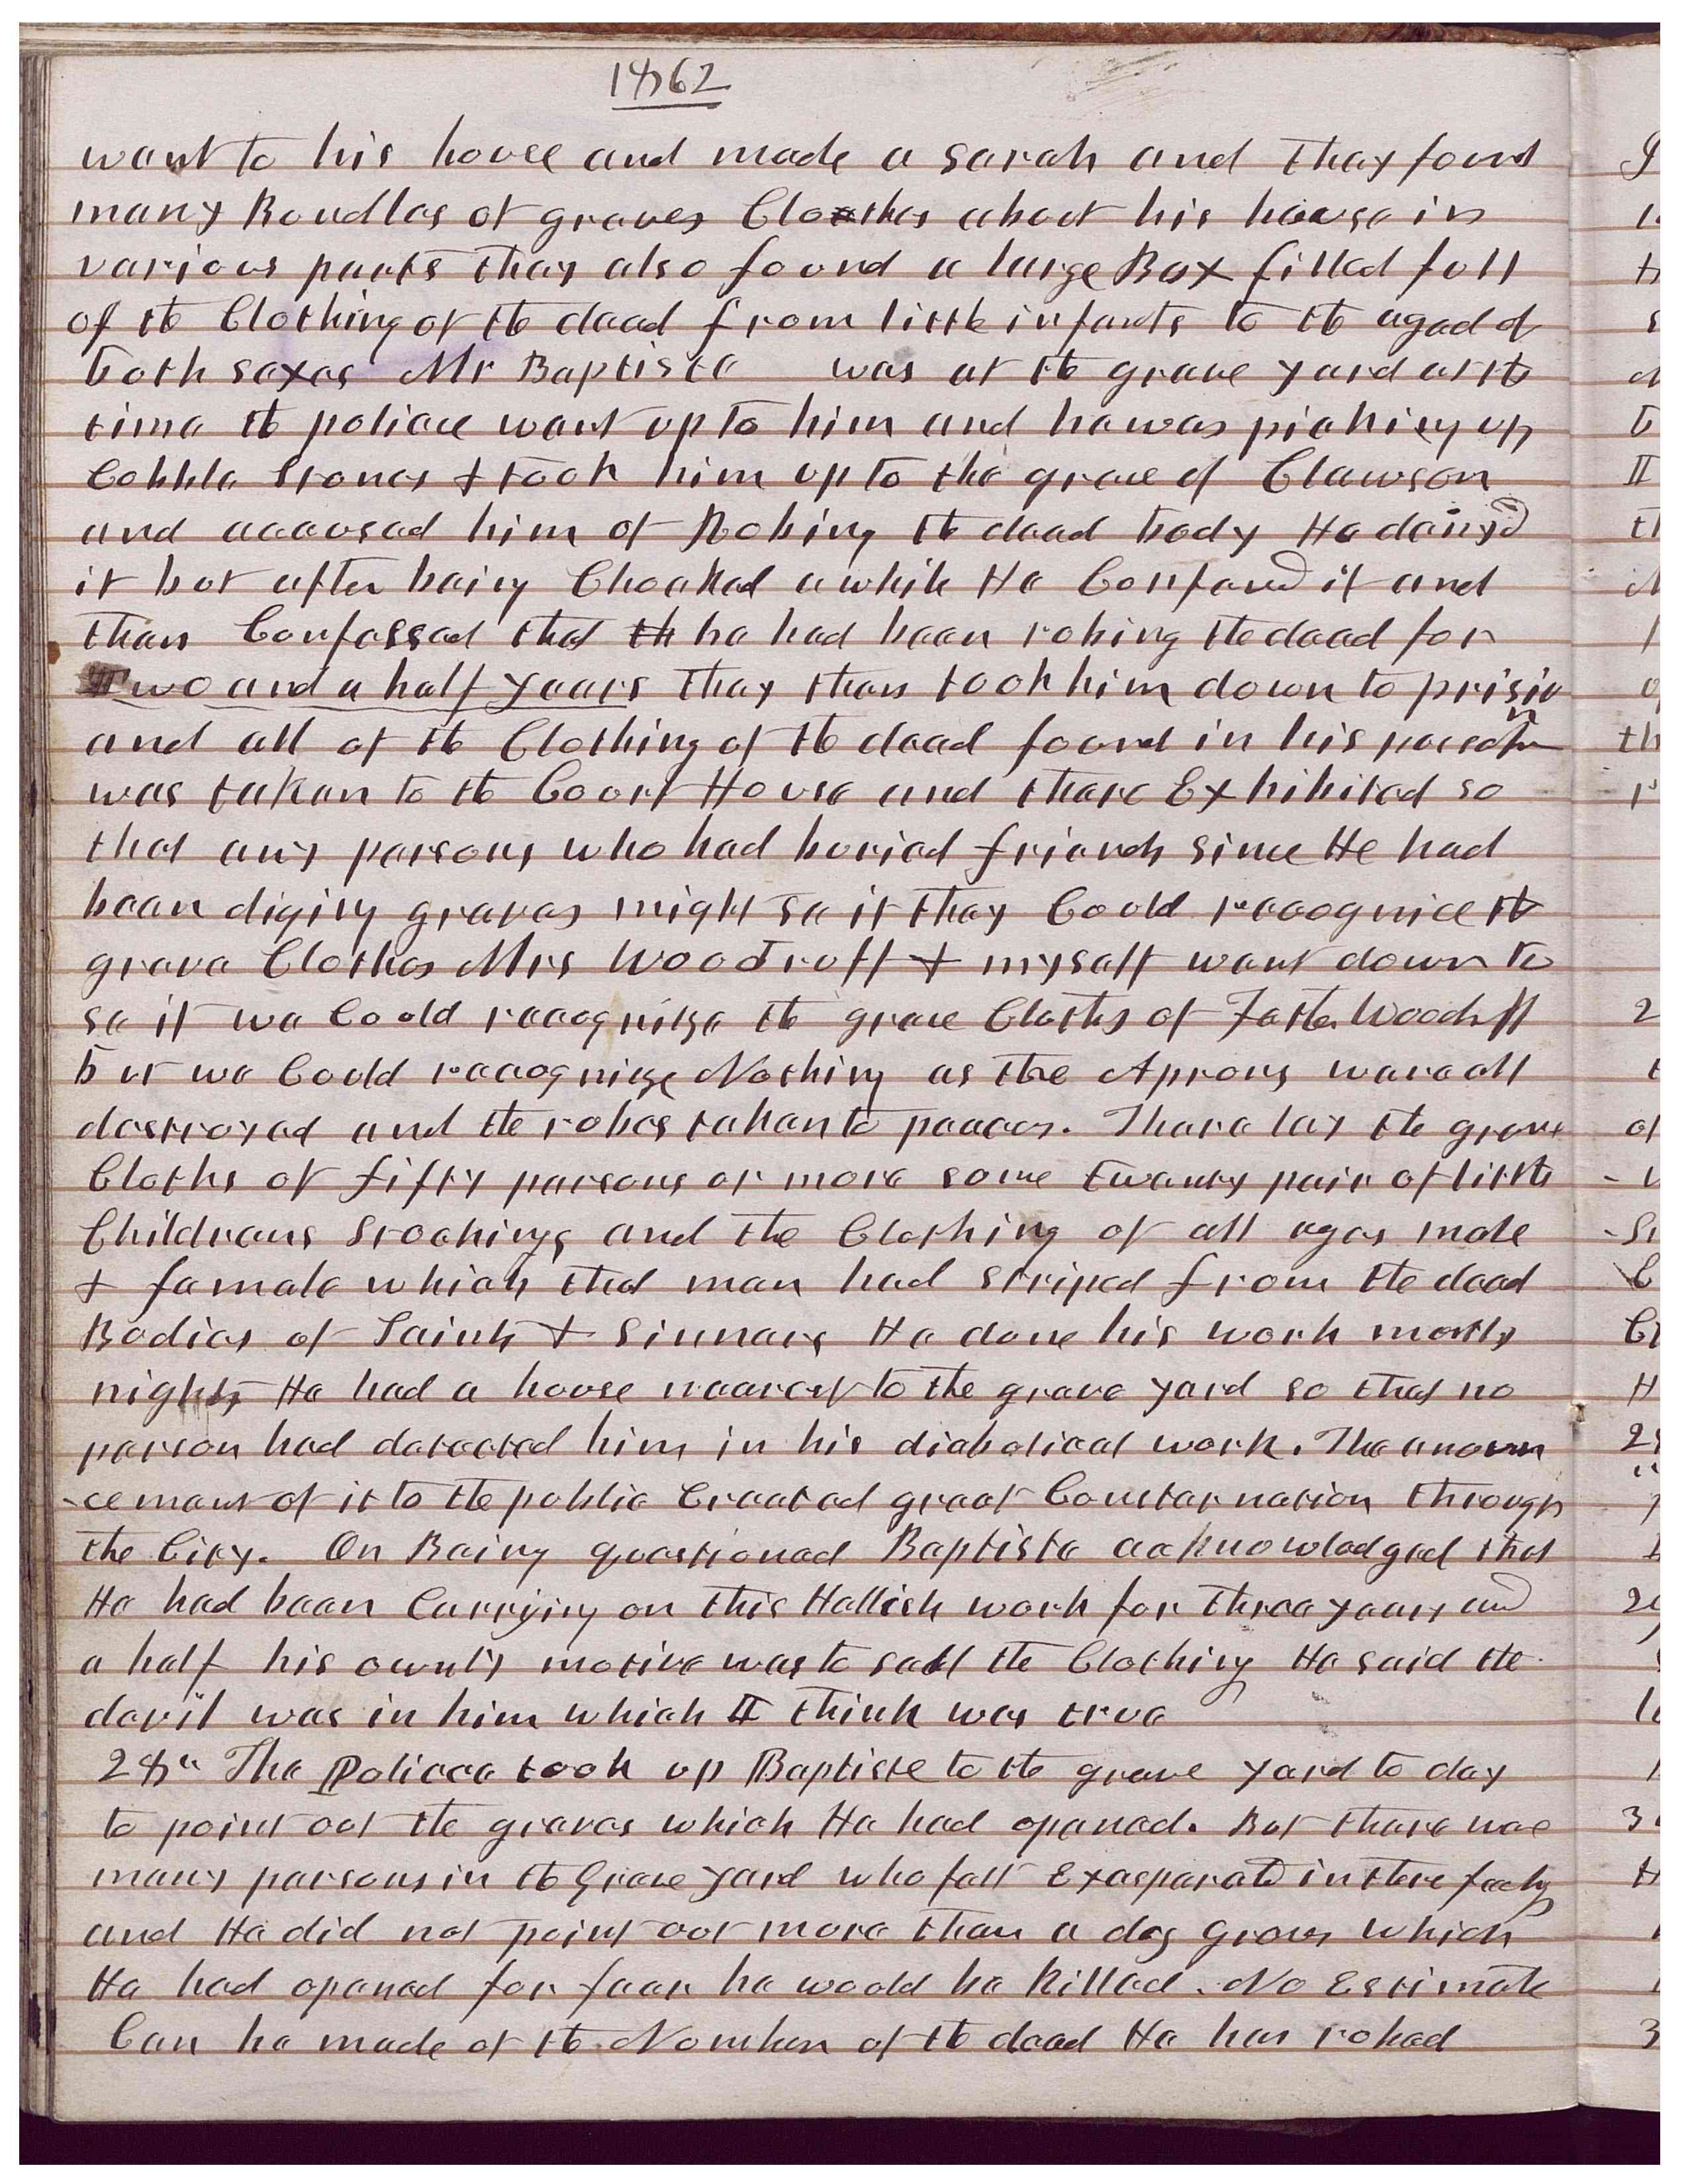 1862
went to his house and made a sarch and they found
many Boudles of graves Clothes about his house in
various parts they also found a large Box filled full
of the Clothing of the dead from little infants to the aged of
both sexes Mr Baptiste was at the grave yard at the
time the police went up to him and he was picking up
Cobble Stones & took him up to the grave of Clawson
and accused him of Robing the dead body He denyed
it but after being Choaked a while He Confesed it and
then Confessed that th he had been robing the dead for
Two and a half years They then took him down to prision
and all of the Clothing of the dead found in his
was taken to the Court House and there Exhibited so
that any persons who had buried friends since He had
been diging graves might se if they Could reccognice the
grave Clothes Mrs Woodruff & myself went down to
se if we Could reccognize the grave Cloths of Father Woodruff
but we Could reccognize Nothing as the Aprons were all
destroyed and the robes taken to peaces. There lay the grave
Cloths of fifty persons or more some twenty pair of little
Childrens Stockings and the Clothing of all ages male
& female which that man had striped from the dead
Bodies of Saints & Sinners He done his work mostly
nights He had a house nearest to the grave yard so that no
person had detected him in his diabolical work. The anoun
-cement of it to the public Created great Consternation through
the City. On Being questioned Baptiste acknowledged that
He had been Carrying on this Hellish work for three years and
a half his ownly motive was to sell the Clothing He said the
devil was in him which I think was true
28th The Policee took up Baptiste to the grave yard to day
to point out the graves which He had opened. But there was
many persons in the Grave yard who felt Exasperated in there feelings
and He did not point out more than a dog graves which
He had opened for fear he would be Killed. No Estimate
Can be made of the Number of the dead He has robed